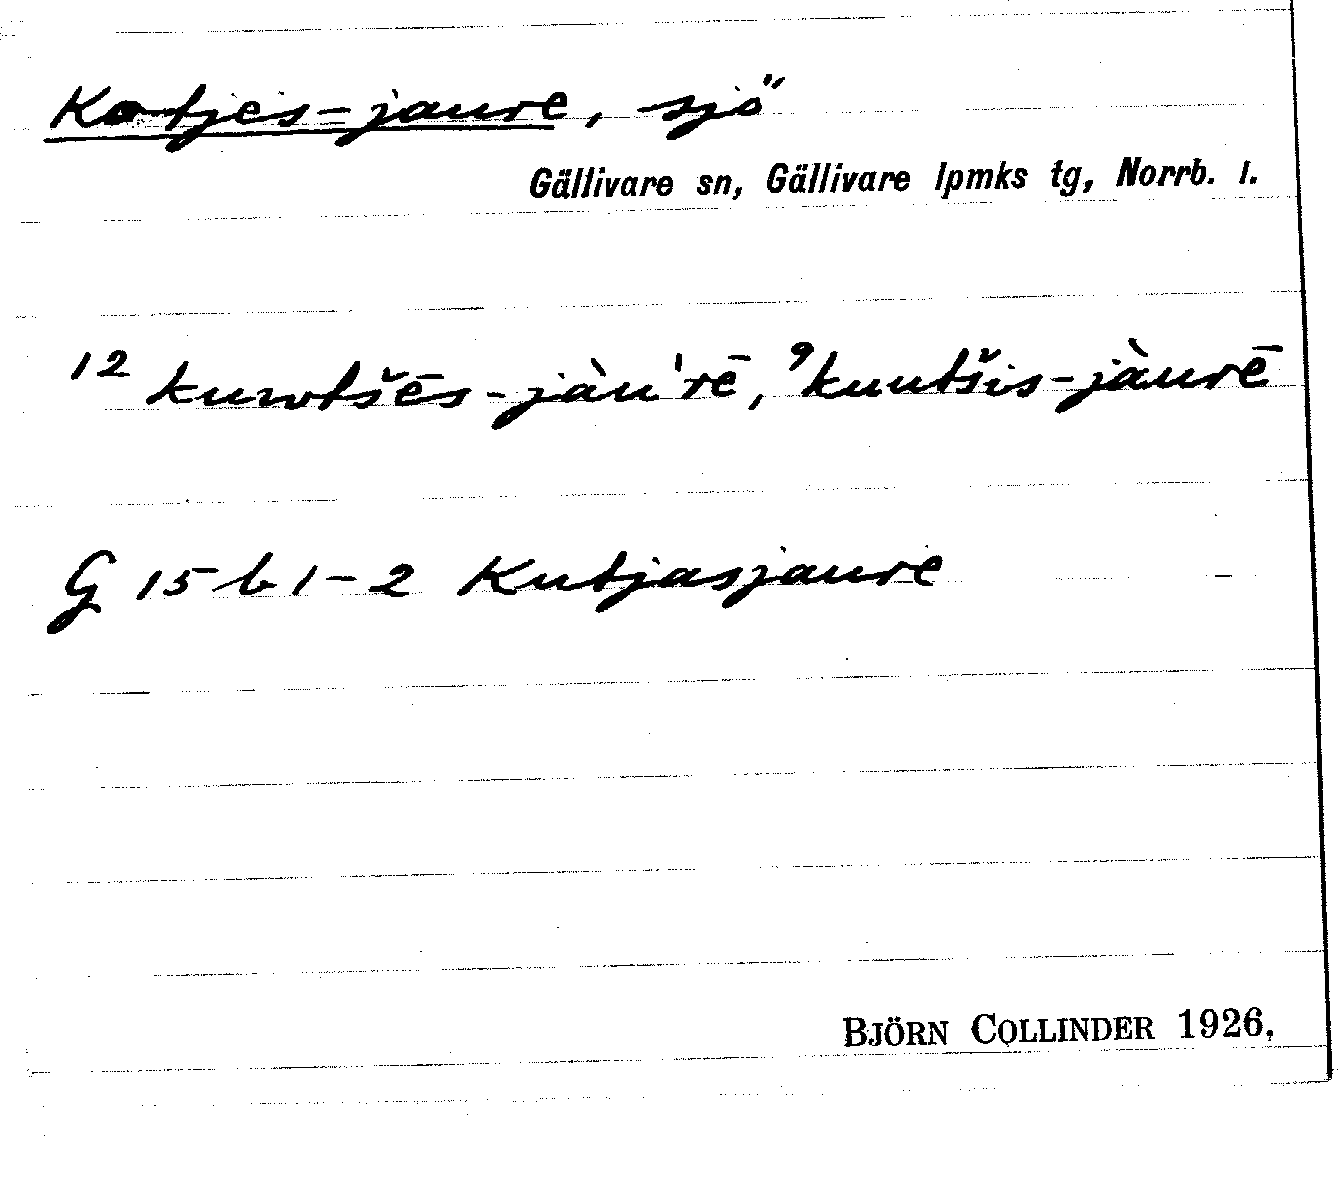 Kotjes-jaure, sjö
Gällivare sn, Gällivare lpmks tg, Norrb. l.
12 kuwtšēs-jàu'rē, 9 kuutšis-jàurē
G 15 b 1-2 Kutjasjaure
BJÖRN COLLINDER 1926,